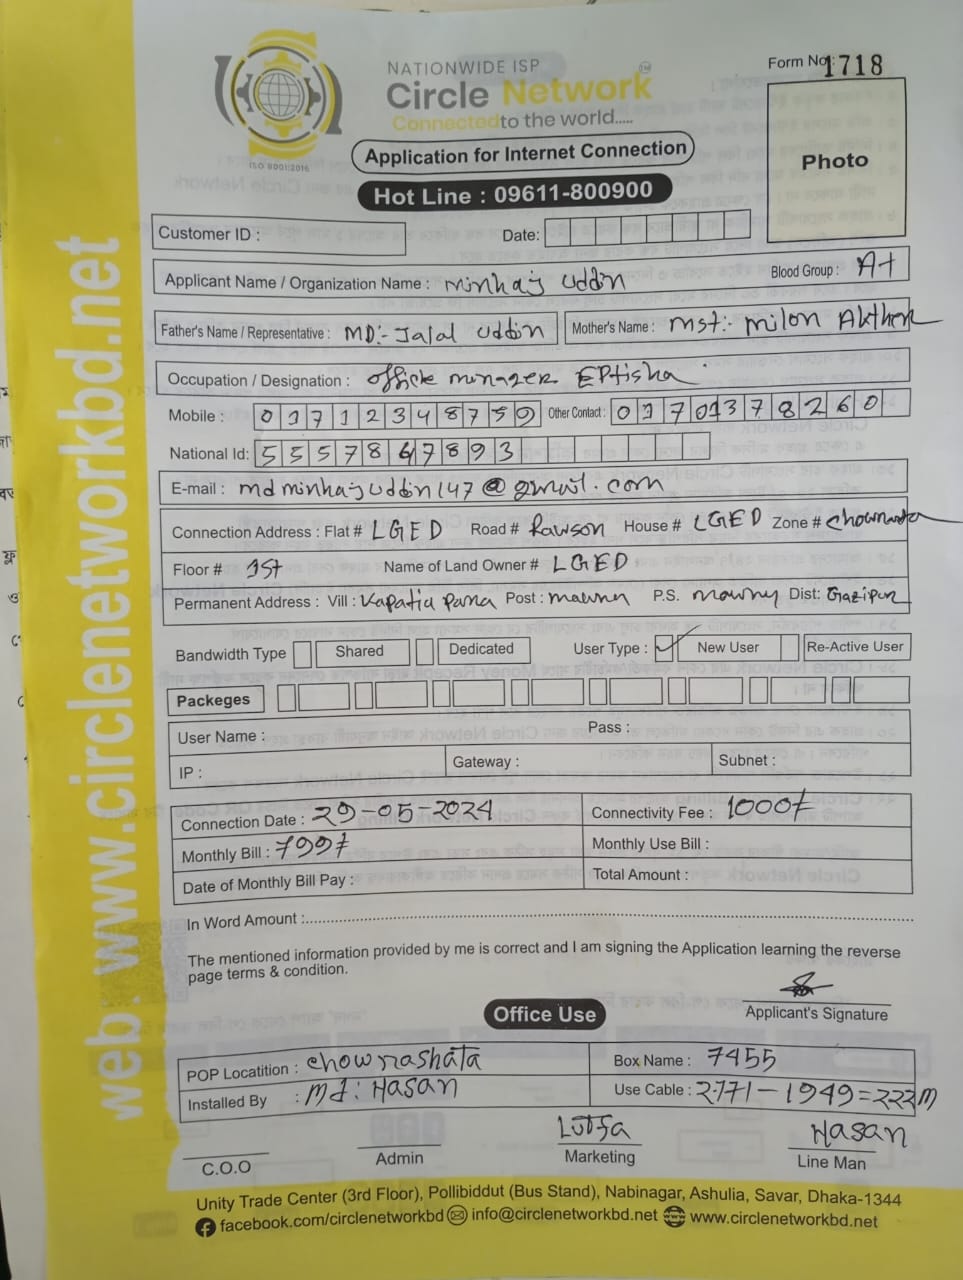 NATIONWIDE ISP
Circle Network
Connected to the world.....
ISO 9001:2015
Form No: 1718
Photo
Application for Internet Connection
Hot Line : 09611-800900
Customer ID :
Date:
Applicant Name / Organization Name : Minhaj Uddin Blood Group : A+
Father's Name / Representative : MD:- Jalal Uddin Mother's Name : Mst:- Milon Akther
Occupation / Designation : office manager EPtisha
Mobile : 01712348759 Other Contact : 01701378260
National Id: 5557867893
E-mail : mdminhajuddin147@gmail.com
Connection Address : Flat # LGED Road # Rawson House # LGED Zone #
Floor # 1st Name of Land Owner # LGED
Permanent Address : Vill : Kapatia Para Post : mawna P.S. mawny Dist: Gazipur
Bandwidth Type Shared Dedicated User Type : ✓ New User Re-Active User
Packeges
User Name : Pass :
IP : Gateway : Subnet :
Connection Date : 29-05-2024 Connectivity Fee : 1000/
Monthly Bill : 799/ Monthly Use Bill :
Date of Monthly Bill Pay : Total Amount :
In Word Amount :
The mentioned information provided by me is correct and I am signing the Application learning the reverse
page terms & condition.
Applicant's Signature
Office Use
POP Locatition : chowrashata Box Name : 7455
Installed By : Md: Hasan Use Cable : 2171-1949=222m
Lutfa Hasan
C.O.O Admin Marketing Line Man
Unity Trade Center (3rd Floor), Pollibiddut (Bus Stand), Nabinagar, Ashulia, Savar, Dhaka-1344
facebook.com/circlenetworkbd info@circlenetworkbd.net www.circlenetworkbd.net
web: www.circlenetworkbd.net